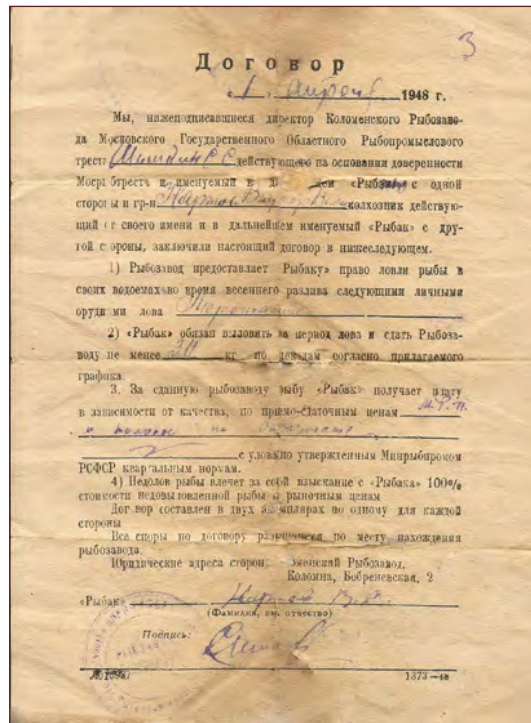 3
Договор
« 1 » апреля 1948 г.
Мы, нижеподписавшиеся директор Коломенского Рыбозаво-
да Московского Государственного Областного Рыбопромыслового
трест Шишкин С С действующего на основании доверенности
Мосрыбтрест и именуемый в «Рыбзавод» с одной
стороны и гр-н колхозник действую-
щий от своего имени и в дальнейшем именуемый «Рыбак» с дру-
гой стороны, заключили настоящий договор в нижеследующем.
1) Рыбозавод предоставляет Рыбаку» право ловли рыбы в
своих водоемах во время весеннего разлива следующими личными
оруди ми лова
2) «Рыбак» обязан выловить за период лова и сдать Рыбоза-
воду не менее кг по декадам согласно прилагаемого
графика.
3. За сданную рыбозаводу рыбу «Рыбак» получает плату
в зависимости от качества, по приемо-сдаточным ценам М.Р.П.
и
с улова по утвержденным Минрыбпромом
РСФСР квартальным нормам.
4) Недолов рыбы влечет за собй взыскание с «Рыбака» 100%
стоимости недовыловленной рыбы о рыночным ценам
Дог вор составлен в двух экземплярах по одному для каждой
стороны
Все споры по договору разрешаются по месту нахождения
рыбозавода.
Юридические адреса сторон: оменский Рыбозавод,
Коломна, Бобреневская, 2
«Рыбак»
(Фамилия, им. отчество)
Подпись:
1373—48